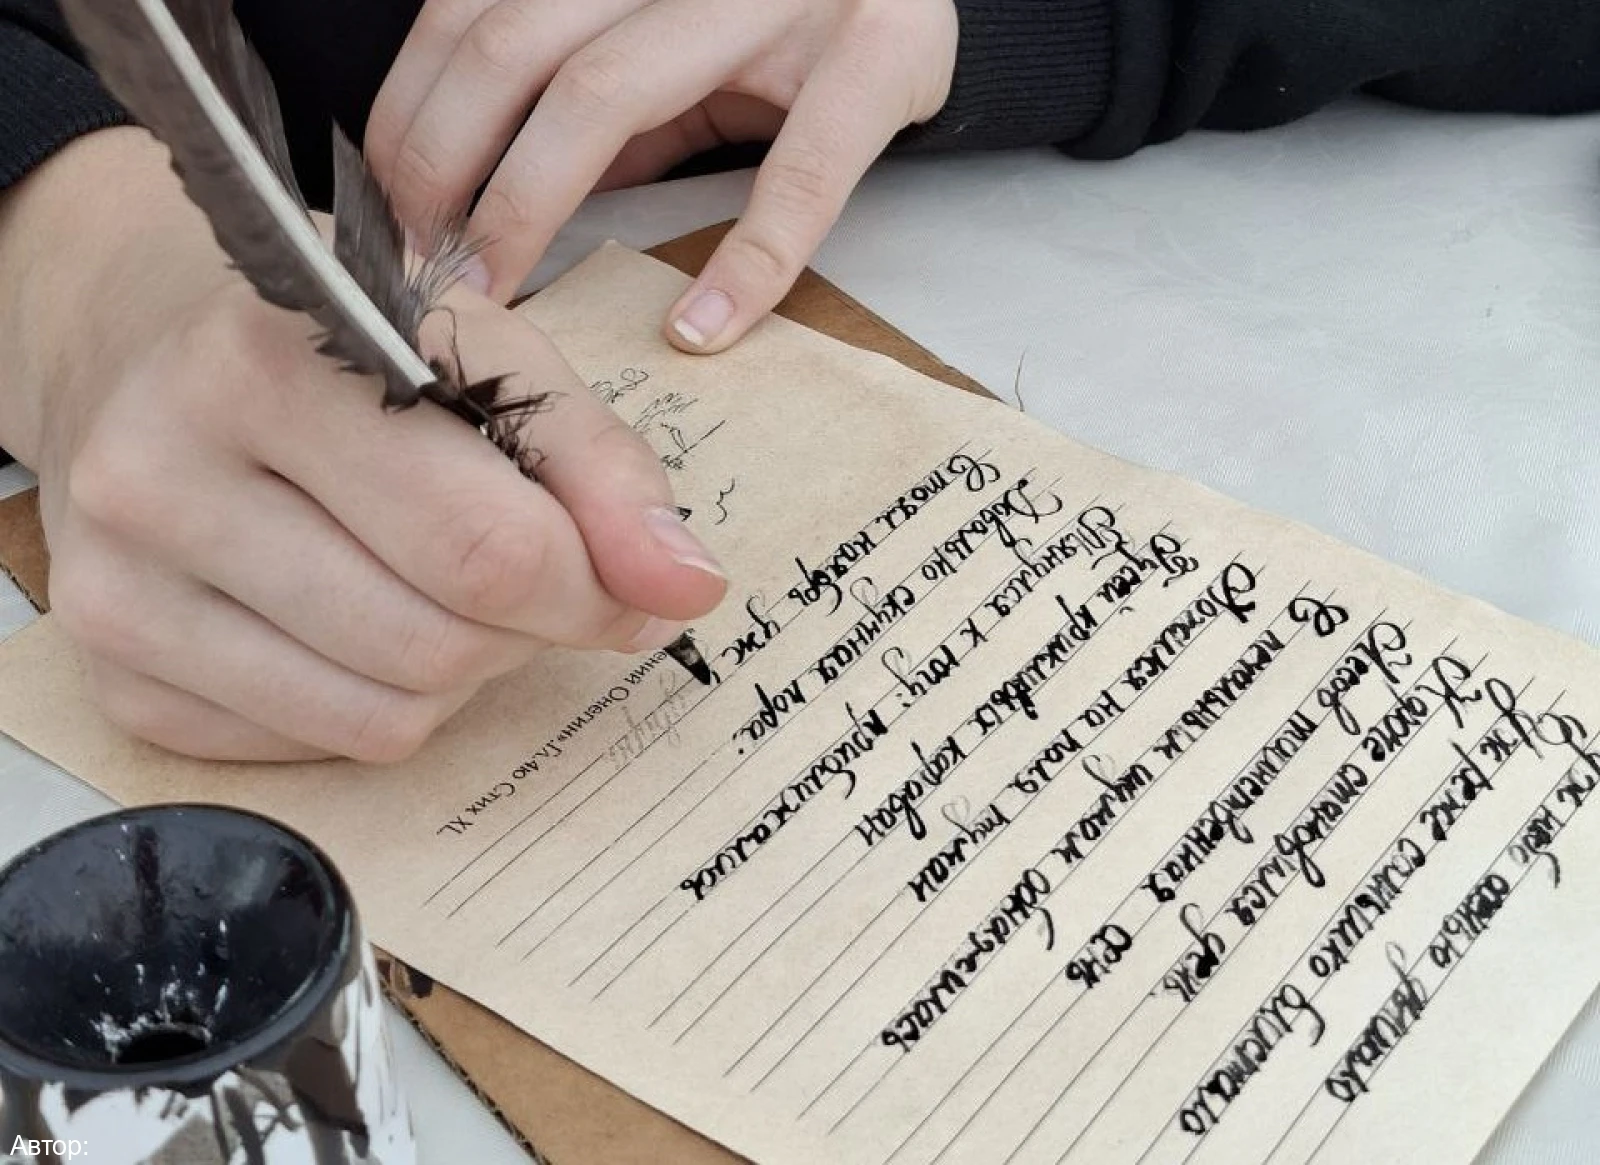 Уж небо осенью дышало
Уж реже солнышко блистало
Короче становился день.
Лесов таинственная сень
С печальным шумом обнажилась
Ложился на поля туман
Гусей крикливых караван
Тянулся к югу: приближалась
Довольно скучная пора:
Стоял ноябрь уж
двора.
Онегин». Гл.4ю Стих XL.
Автор: